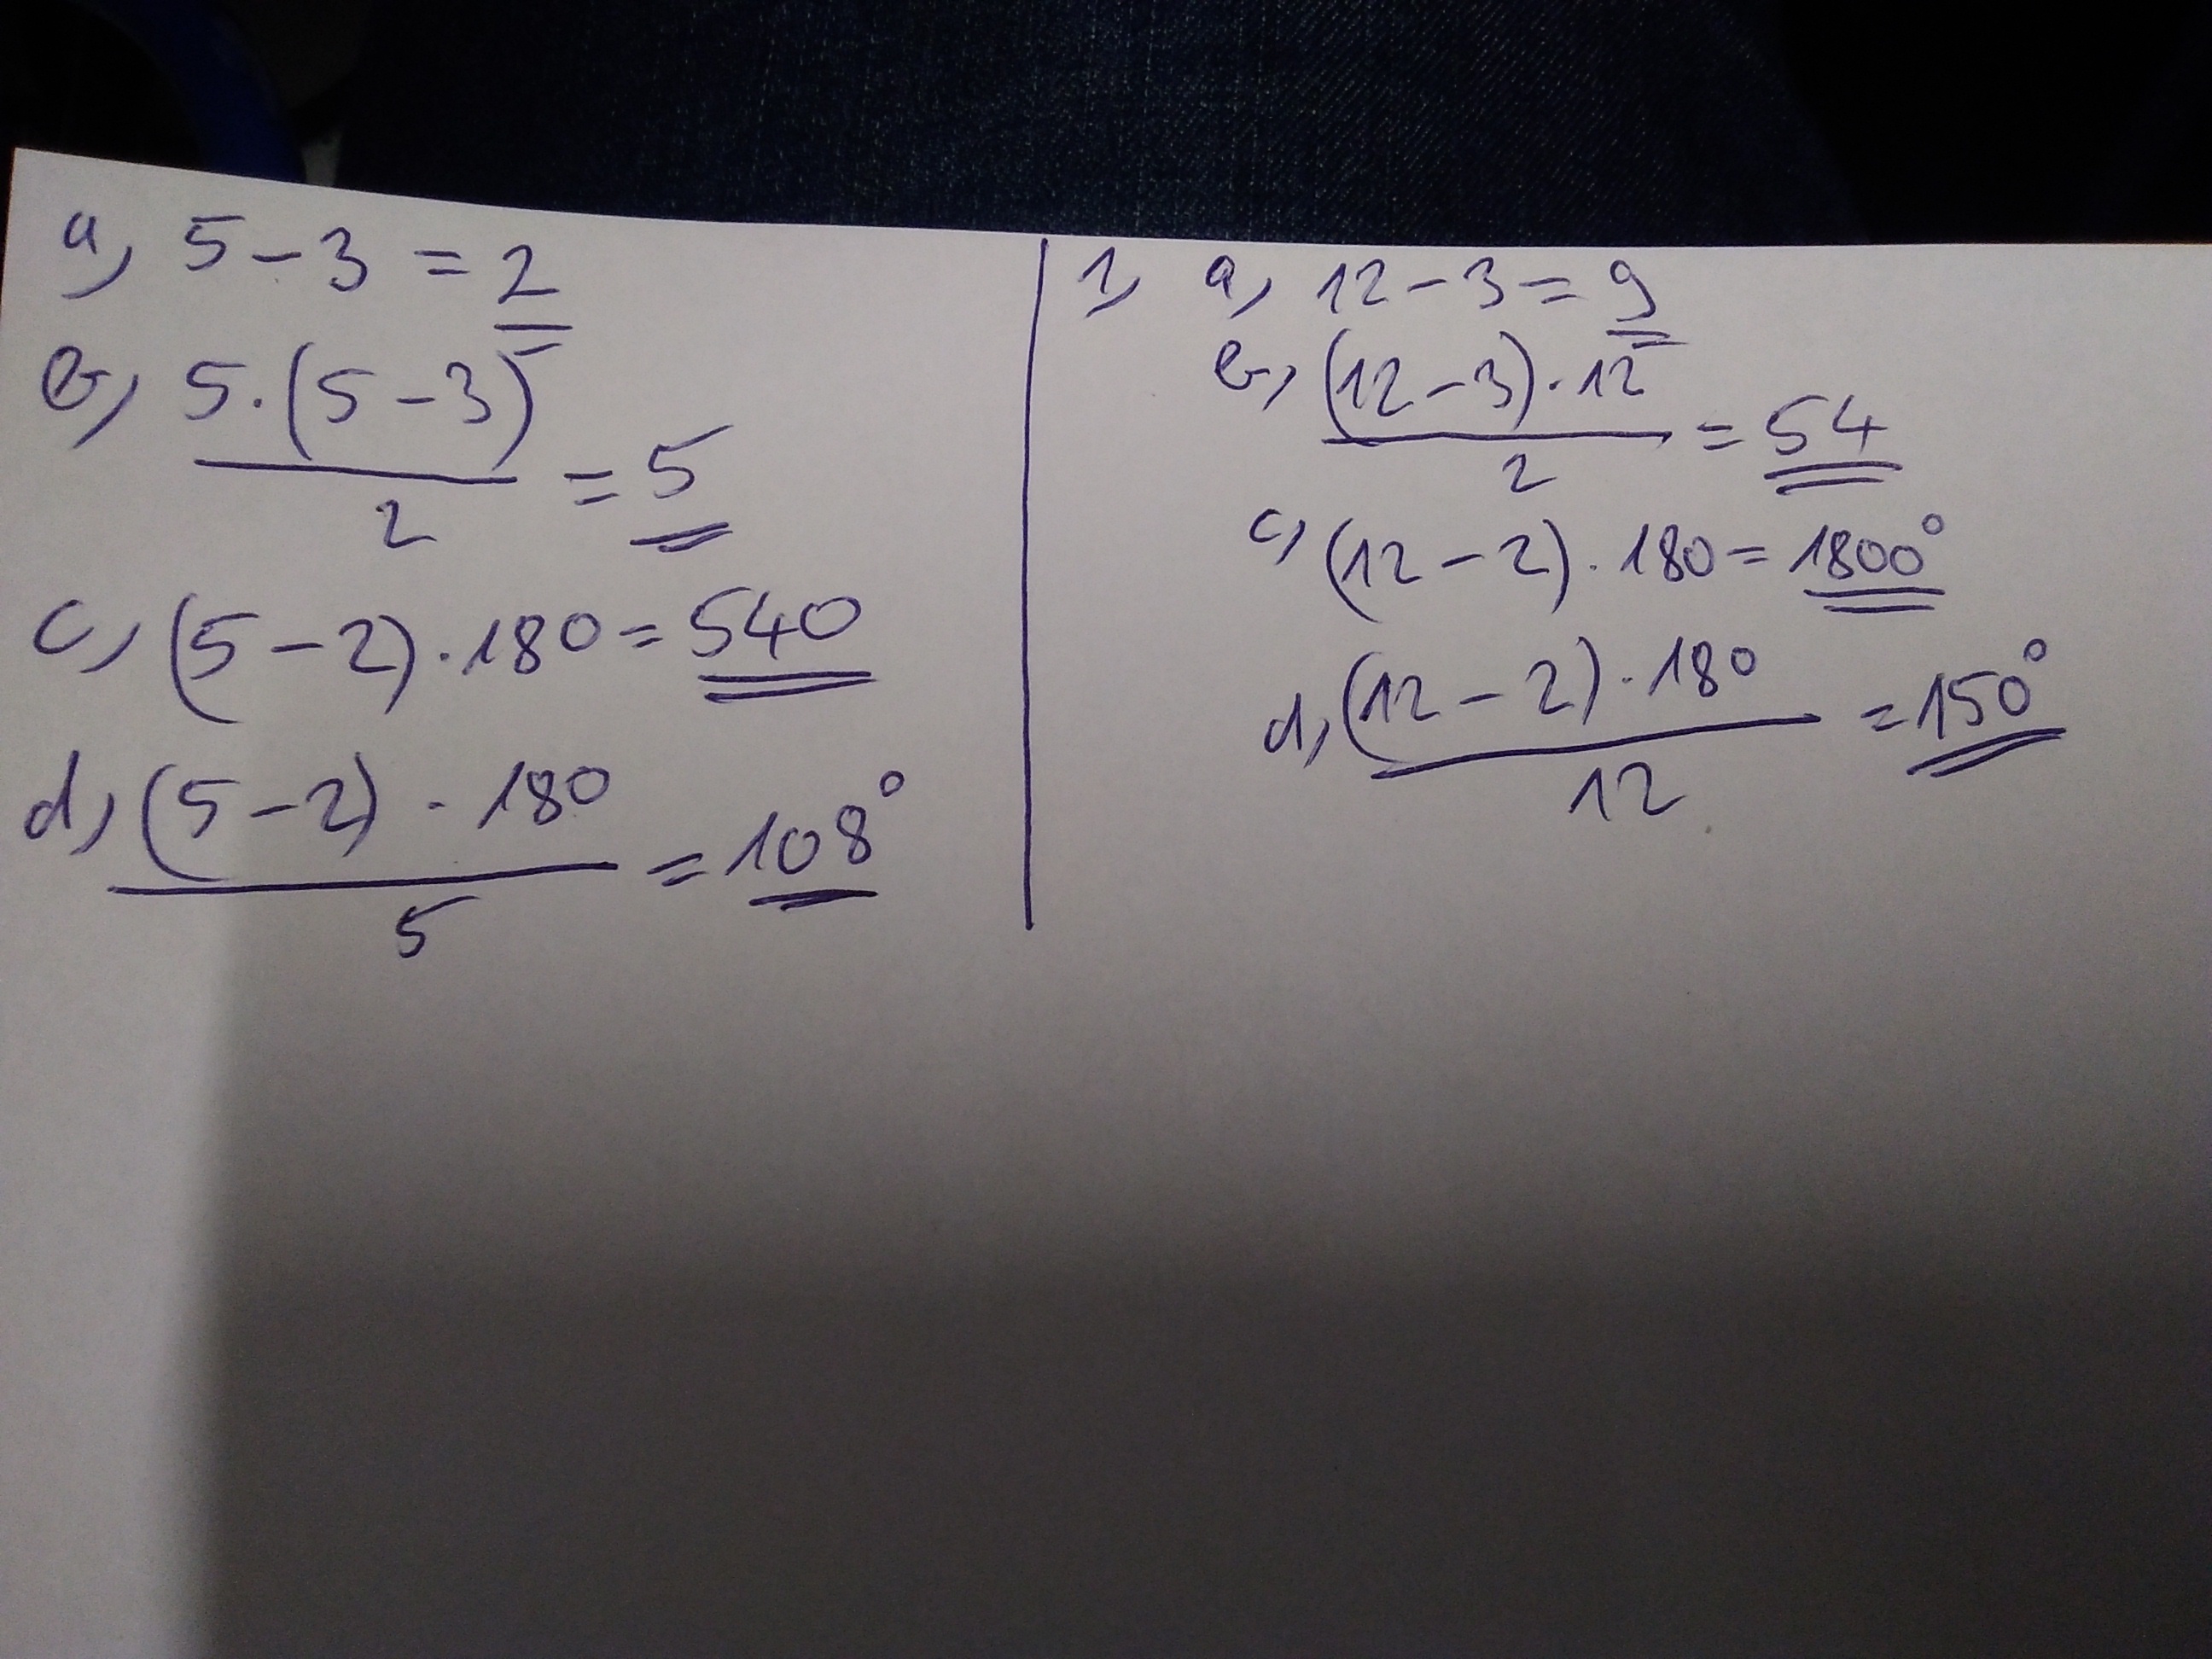 a, 5 - 3 = 2
b, 5 · (5 - 3)
2
= 5
c, (5 - 2) · 180 = 540
d, (5 - 2) · 180
5
= 108°
1, a, 12 - 3 = 9
b, (12 - 3) · 12
2
= 54
c, (12 - 2) · 180 = 1800°
d, (12 - 2) · 180
12
= 150°